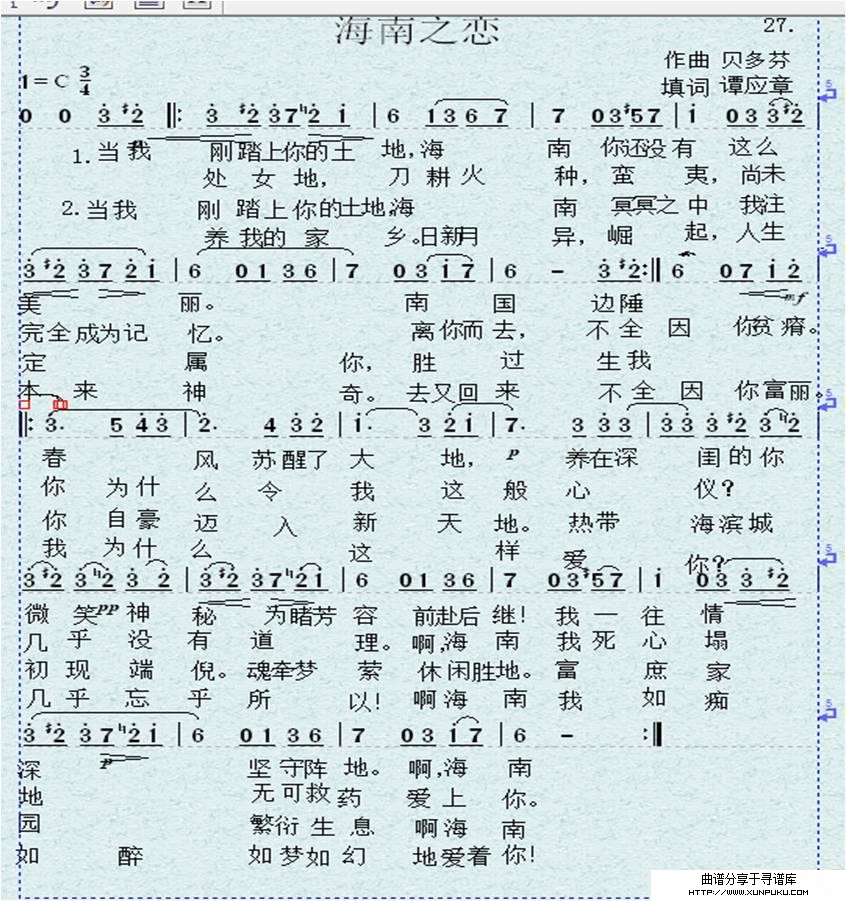 海南之恋
27.
作曲 贝多芬
填词 谭应章
1=C 3/4
0 0 3 #2 ‖: 3 #2 3 7 ♮2 1 | 6 1 3 6 7 | 7 0 3 #5 7 | 1 0 3 3 #2
1.当我 刚踏上你的土 地,海 南 你还没有 这么
处 女 地, 刀 耕 火 种,蛮 夷,尚未
2.当我 刚 踏上你的土地,海 南 冥冥之中 我注
养 我的 家 乡。日新月 异,崛 起,人生
3 #2 3 7 2 1 | 6 0 1 3 6 | 7 0 3 1 7 | 6 – 3 #2 :‖ 6 0 7 1 2
美 丽。 南 国 边陲 mf
完全成为记 忆。 离你而去, 不 全 因 你贫瘠。
定 属 你, 胜 过 生我
本 来 神 奇。去又回来 不 全 因 你富丽。
‖: 3. 5 4 3 | 2. 4 3 2 | 1. 3 2 1 | 7. 3 3 3 | 3 3 3 #2 3 ♮2
春 风 苏醒了 大 地, p 养在深 闺的你
你 为什 么 令 我 这 般 心 仪?
你 自豪 迈 入 新 天 地。热带 海滨城
我 为什 么 这 样 爱 你?
3 #2 3 ♮2 3 2 | 3 #2 3 7 ♮2 1 | 6 0 1 3 6 | 7 0 3 #5 7 | 1 0 3 3 #2
微 笑 pp 神 秘 为睹芳 容 前赴后 继! 我 一 往 情
几 乎 没 有 道 理。啊,海 南 我 死 心 塌
初 现 端 倪。魂牵梦 萦 休闲胜地。富 庶 家
几 乎 忘 乎 所 以! 啊海 南 我 如 痴
3 #2 3 7 ♮2 1 | 6 0 1 3 6 | 7 0 3 1 7 | 6 – :‖
深 p 坚守阵 地。 啊,海 南
地 无可救药 爱上 你。
园 繁衍生息 啊海 南
如 醉 如梦如幻 地爱着你!
曲谱分享于寻谱库
HTTP://WWW.XUNPUKU.COM